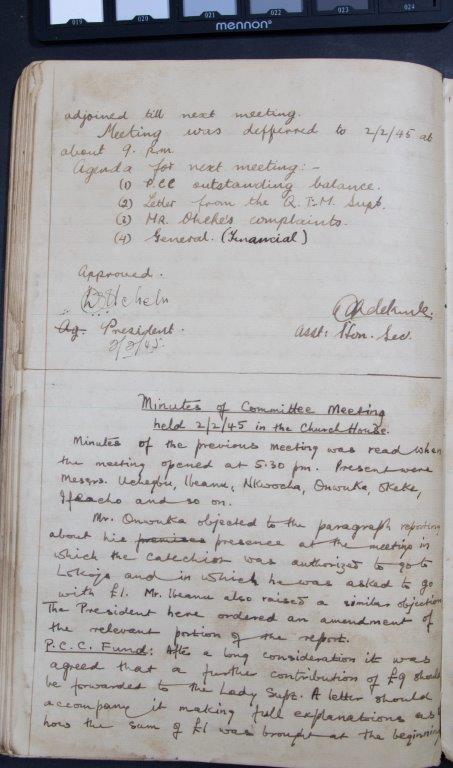 019 020 021 022 023 024
mennon®
adjoined till next meeting.
Meeting was defferred to 2/2/45 at
about 9. P.m
Agenda for next meeting:-
(1) P.CC outstanding balance.
(2) Letter from the Q.I.M. Supt.
(3) MR. Okeke's complaints.
(4) General. (Financial)
Approved.
Ag. President.
2/2/45
Asst: Hon. Sec.
Minutes of Committee Meeting
held 2/2/45 in the Church House.
Minutes of the previous meeting was read when
the meeting opened at 5.30 pm. Present were
Messrs. Uchegbu, Ibeanu, Nkwocha, Onwuka, Okeke,
Ifeacho and so on.
Mr. Onwuka objected to the paragraph reporting
about his promises presence at the meeting in
which the catechist was authorized to go to
Lokoja and in which he was asked to go
with £1. Mr. Ibeanu also raised a similar objection
The President here ordered an amendment of
the relevant portion of the report.
P.C.C. Fund: After a long consideration it was
agreed that a further contribution of £9 should
be forwarded to the Lady Supt. A letter should
accompany it making full explanations as to
how the sum of £1 was brought at the beginning